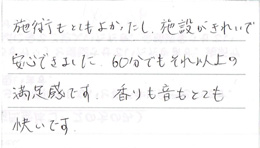 施術もとてもよかったし、施設がきれいで
安心できました。60分でもそれ以上の
満足感です。香りも音もとても
快いです。